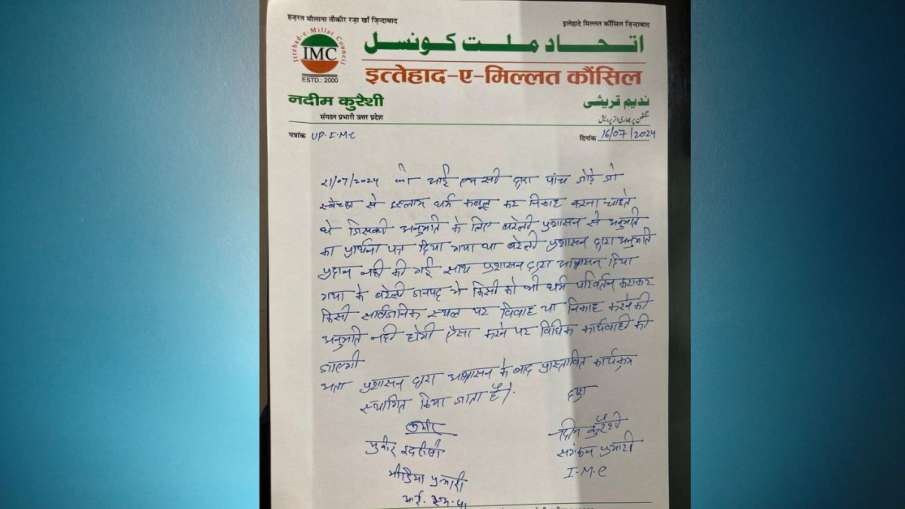 हज़रत मौलाना तौकीर रज़ा खाँ ज़िन्दाबाद
इत्तेहादे मिल्लत कौंसिल ज़िन्दाबाद
Ittehad-e-Millat Council
IMC
ESTD.: 2000
اتحاد ملت کونسل
इत्तेहाद-ए-मिल्लत कौंसिल
नदीम कुरैशी
ندیم قریشی
संगठन प्रभारी उत्तर प्रदेश
पत्रांक UP-I-M-C
दिनांक 16/07/2024
21/07/2024 को आई एम सी द्वारा पांच जोड़े जो
स्वेच्छा से इस्लाम धर्म कबूल कर निकाह करना चाहते
थे जिसकी अनुमति के लिए बरेली प्रशासन से अनुमति
का प्रार्थना पत्र दिया गया था बरेली प्रशासन द्वारा अनुमति
प्रदान नहीं की गई साथ प्रशासन द्वारा आश्वासन दिया
गया के बरेली जनपद में किसी को भी धर्म परिवर्तन कराकर
किसी सार्वजनिक स्थल पर विवाह या निकाह करने की
अनुमति नहीं होगी ऐसा करने पर विधिक कार्यवाही की
जाएगी
अतः प्रशासन द्वारा आश्वासन के बाद प्रस्तावित कार्यक्रम
स्थगित किया जाता है।
मुनीर इदरीसी
नदीम कुरैशी
मीडिया प्रभारी
संगठन प्रभारी
I-M-C
आई. एम. सी